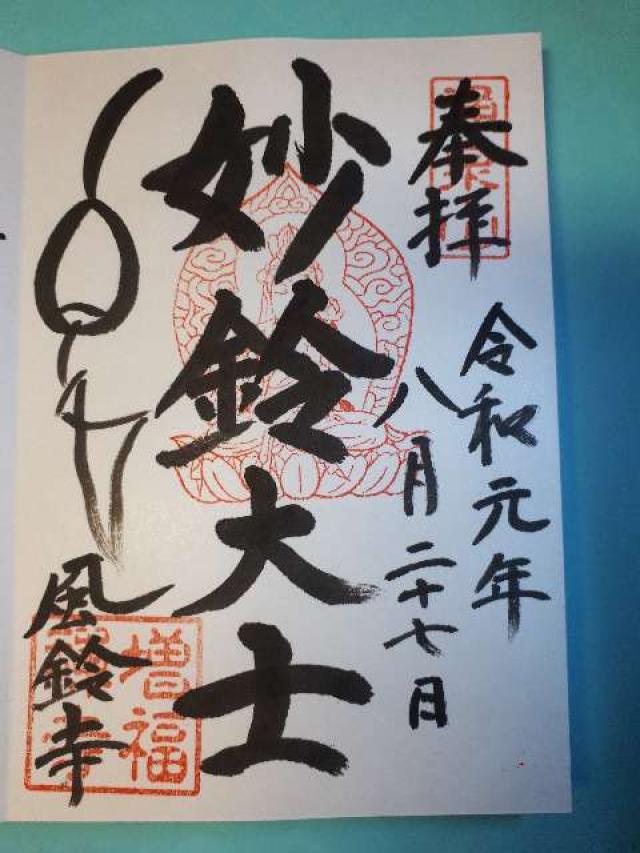 奉拝
令和元年
八月二十七日
妙鈴大士
風鈴寺
増福